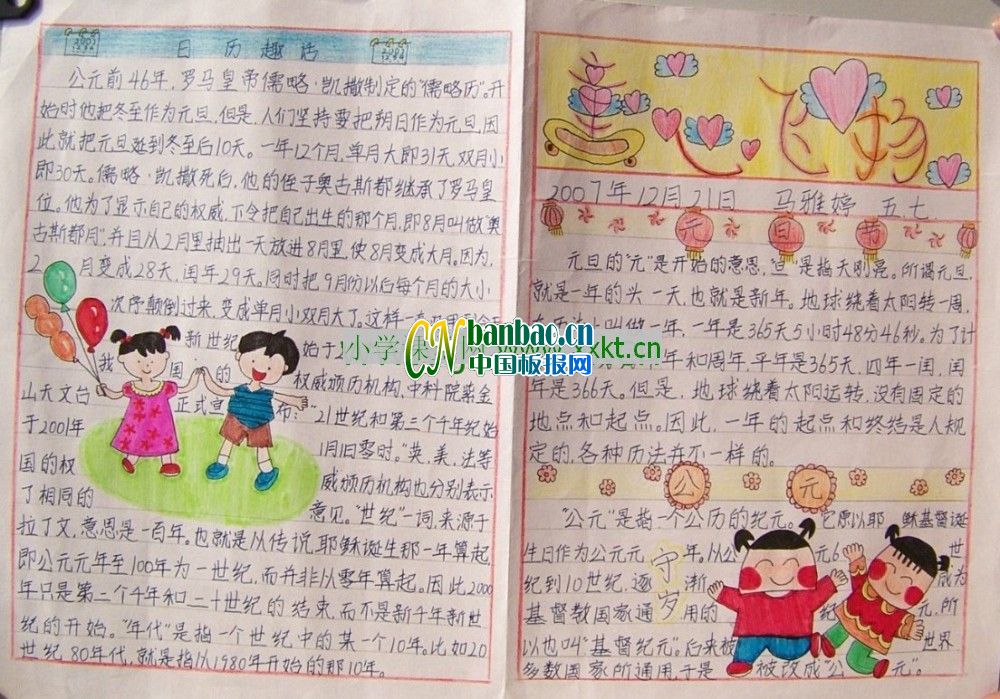 日历趣话
公元前46年,罗马皇帝儒略·凯撒制定的"儒略历"。开
始时他把冬至作为元旦,但是,人们坚持要把朔日作为元旦,因
此就把元旦延到冬至后10天。一年12个月,单月大即31天,双月小
即30天。儒略·凯撒死后,他的侄子奥古斯都继承了罗马皇
位。他为了显示自己的权威,下令把自己出生的那个月,即8月叫做"奥
古斯都月",并且从2月里抽出一天放进8月里,使8月变成大月。因为,
2月变成28天,闰年29天。同时把9月份以后每个月的大小
次序颠倒过来,变成单月小双月大了。这样一
新世纪始于
我国的权威颁历机构,中科院紫金
山天文台正式宣布:"21世纪和第三个千年纪始
于2001年1月1日零时。"英,美,法等
国的权威颁历机构也分别表示
了相同的意见。"世纪"一词,来源于
拉丁文,意思是一百年。也就是从传说,耶稣诞生那一年算起,
即公元元年至100年为一世纪,而并非从零年算起。因此2000
年只是第二个千年和二十世纪的结束,而不是新千年新世
纪的开始。"年代"是指一个世纪中的某一个10年。比如20
世纪80年代,就是指从1980年开始的那10年。
飞扬
2007年12月21日 马雅婷 五.七.
元旦节
元旦的"元"是开始的意思,"旦"是指天刚亮。所谓元旦,
就是一年的头一天,也就是新年。地球绕着太阳转一周,
叫做一年,一年是365天5小时48分46秒。为了计
年和周年,平年是365天,四年一闰,闰
年是366天。但是,地球绕着太阳运转,没有固定的
地点和起点。因此,一年的起点和终结是人规
定的,各种历法并不一样的。
公元
"公元"是指一个公历的纪元。它原以耶稣基督诞
生日作为公元元年。从公元6世
纪到10世纪,逐渐成为
基督教国家通用的纪元,所
以也叫"基督纪元"。后来被世界
多数国家所通用,于是被改成"公元"。
守岁
CN banbao.cn
中国板报网